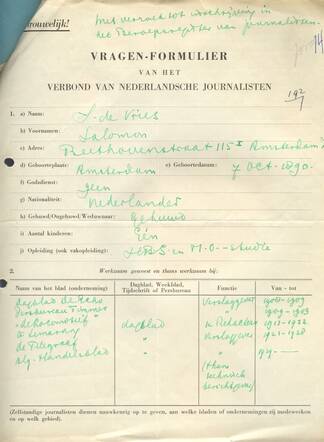 trouwelijk!
Met verzoek tot inschrijving in
het Beroepsregister van journalisten.
VRAGEN-FORMULIER
VAN HET
VERBOND VAN NEDERLANDSCHE JOURNALISTEN
192
1. a) Naam: S. de Vries
b) Voornamen: Salomon
c) Adres: Beethovenstraat 115 I Amsterdam Z
d) Geboorteplaats: Amsterdam e) Geboortedatum: 7 Oct. 1890.
f) Godsdienst: geen
g) Nationaliteit: Nederlander
h) Gehuwd/Ongehuwd/Weduwnaar: Gehuwd
i) Aantal kinderen: Eén
j) Opleiding (ook vakopleiding): H.B.S. en M.O.-studie
2. Werkzaam geweest en thans werkzaam bij:
Naam van het blad (onderneming) Dagblad, Weekblad, Tijdschrift of Persbureau Functie Van - tot
dagblad de Echo Verslaggever 1908-1909
Persbureau 1909-1913
"de Locomotief"
te Semarang dagblad Redacteur 1913-1922
de Telegraaf " Verslaggever 1921-1928
Alg. Handelsblad " " 1929—
(thans
technisch
berichtgever)
(Zelfstandige journalisten dienen nauwkeurig op te geven, aan welke bladen of ondernemingen zij medewerken
en op welk gebied).